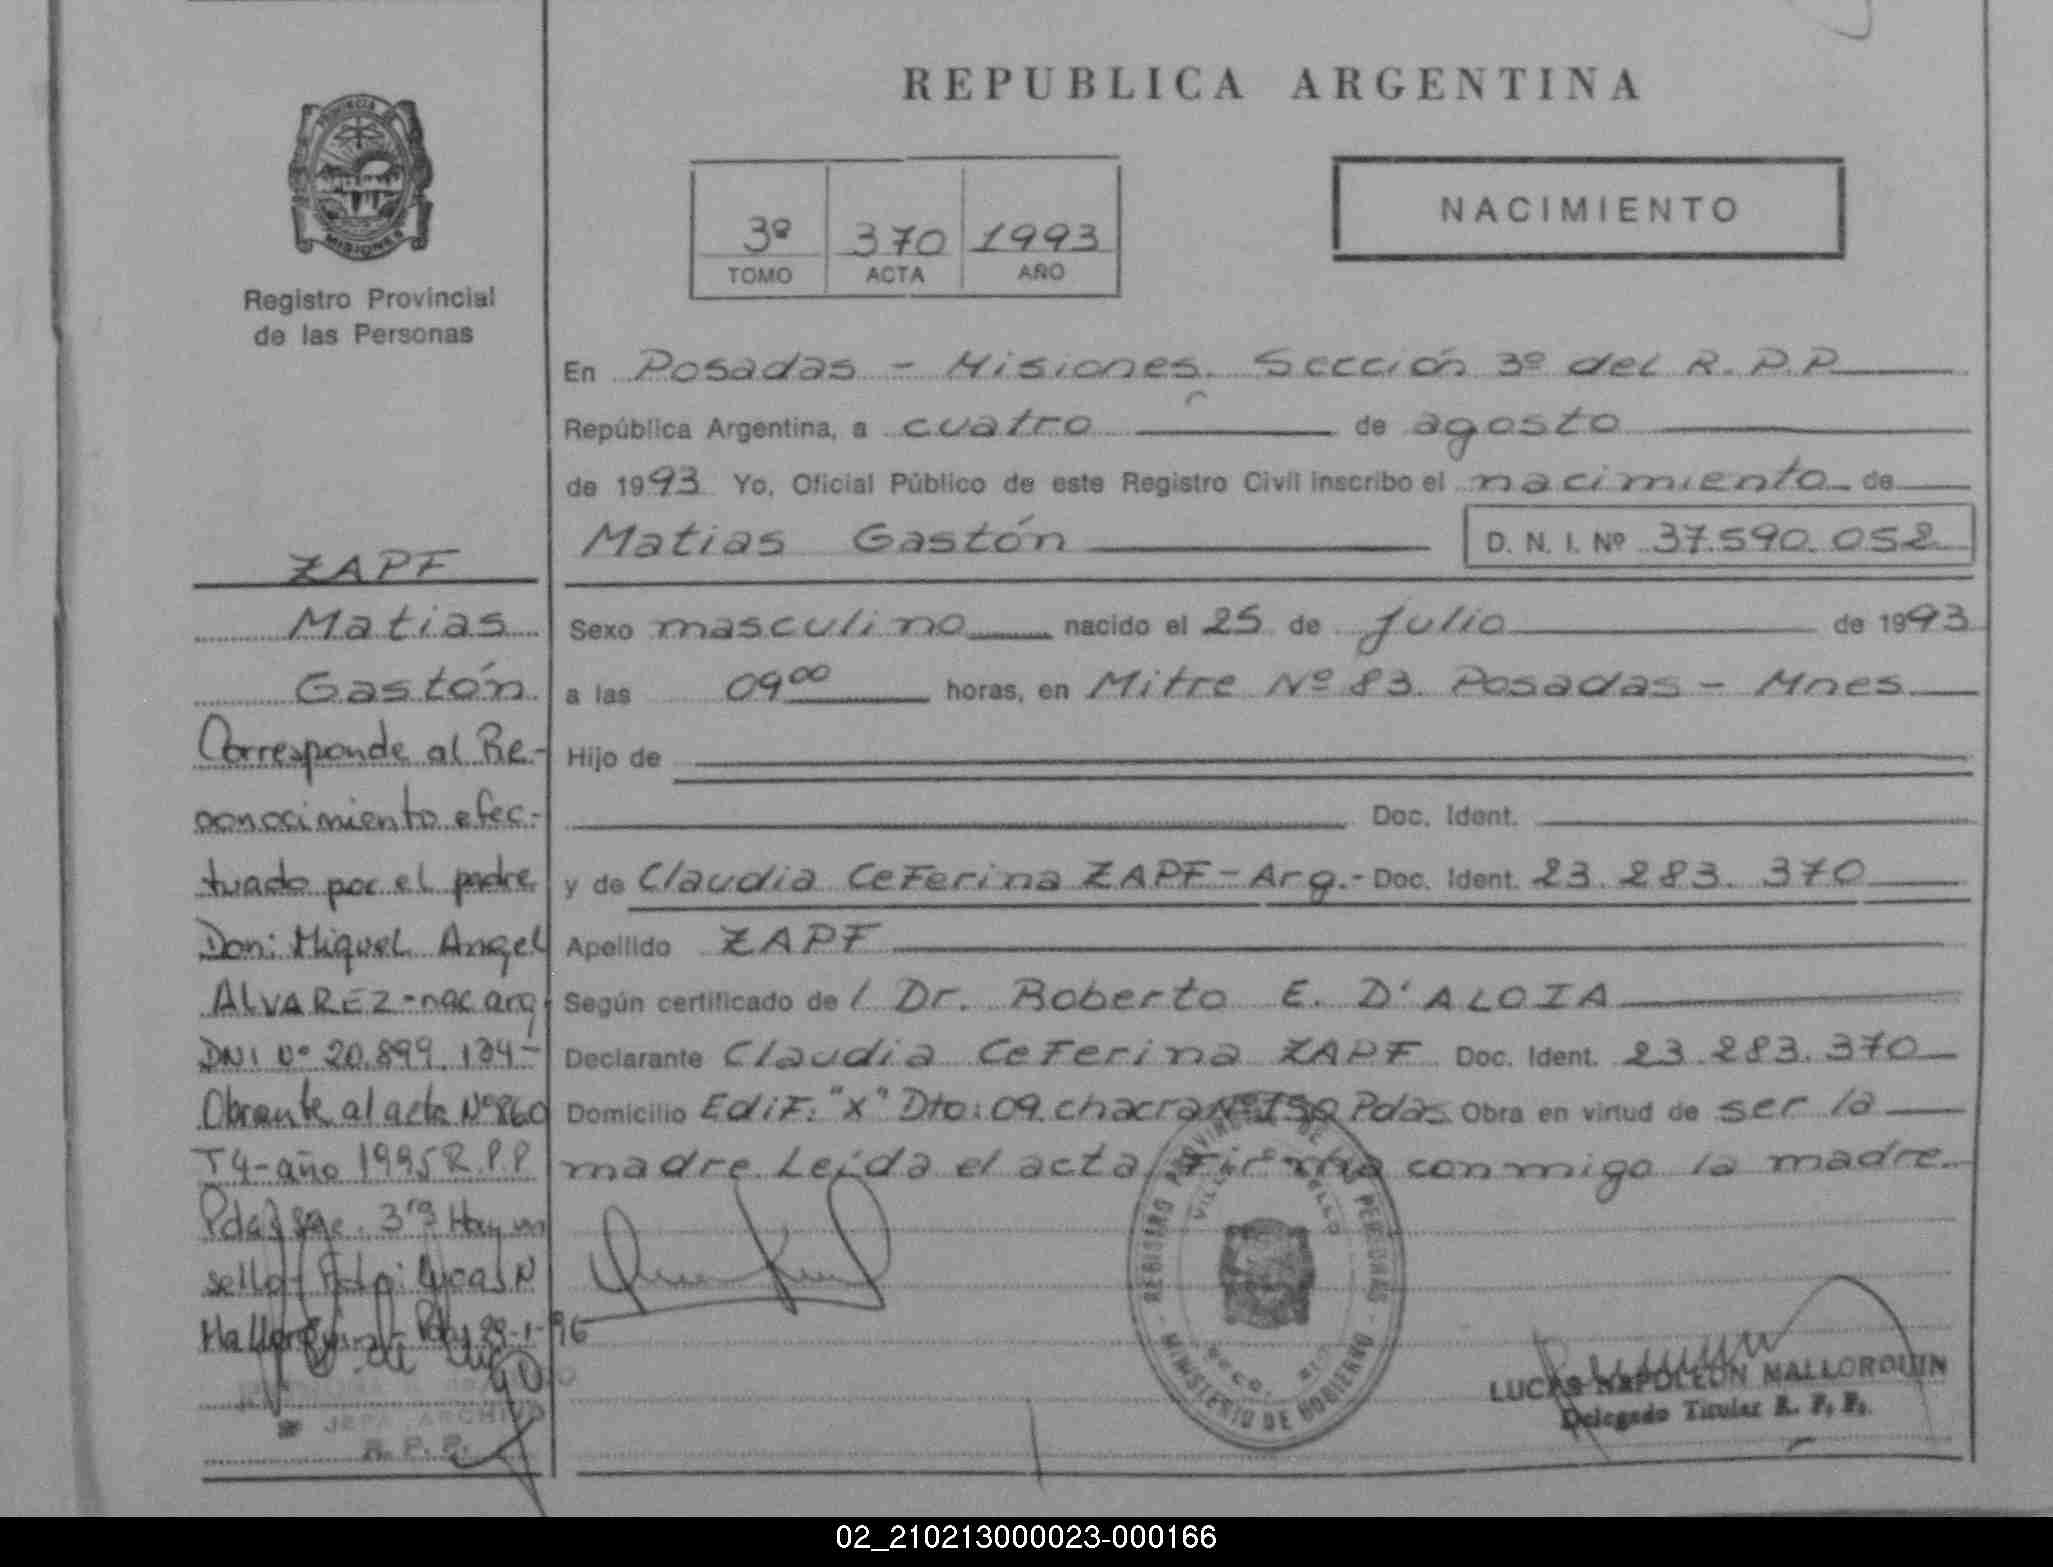 REPUBLICA ARGENTINA
PROVINCIA DE
MISIONES
Registro Provincial
de las Personas
3º 370 1993
TOMO ACTA AÑO
NACIMIENTO
En Posadas - Misiones. Sección 3º del R.P.P.
República Argentina, a cuatro de agosto
de 1993 Yo, Oficial Público de este Registro Civil inscribo el nacimiento de
Matias Gastón D. N. I. Nº 37.590.052
Sexo masculino nacido el 25 de julio de 1993
a las 09⁰⁰ horas, en Mitre Nº 83. Posadas - Mnes
Hijo de
Doc. Ident.
y de Claudia Ceferina ZAPF - Arg.- Doc. Ident. 23.283.370
Apellido ZAPF
Según certificado de l Dr. Roberto E. D'ALOIA
Declarante Claudia Ceferina ZAPF Doc. Ident. 23.283.370
Domicilio Edif: "X" Dto: 09. chacra Nº 150 Pdas. Obra en virtud de ser la
madre Leída el acta, Firma conmigo la madre.
ZAPF
Matias
Gastón
Corresponde al Re-
conocimiento efec-
tuado por el padre
Don: Miguel Angel
ALVAREZ - nac arg.
DNI Nº 20.899.134-
Obrante al acta Nº 860
T4 - año 1995 R.P.P
Pdas 3ra Hay un
sello Lucas N
Mallorquin - Pdas 29-1-96
JEFA ARCHIVO
R. P. P.
REGISTRO PROVINCIAL DE LAS PERSONAS
MINISTERIO DE GOBIERNO
LUCAS NAPOLEON MALLORQUIN
Delegado Titular R. P. P.
02_210213000023-000166